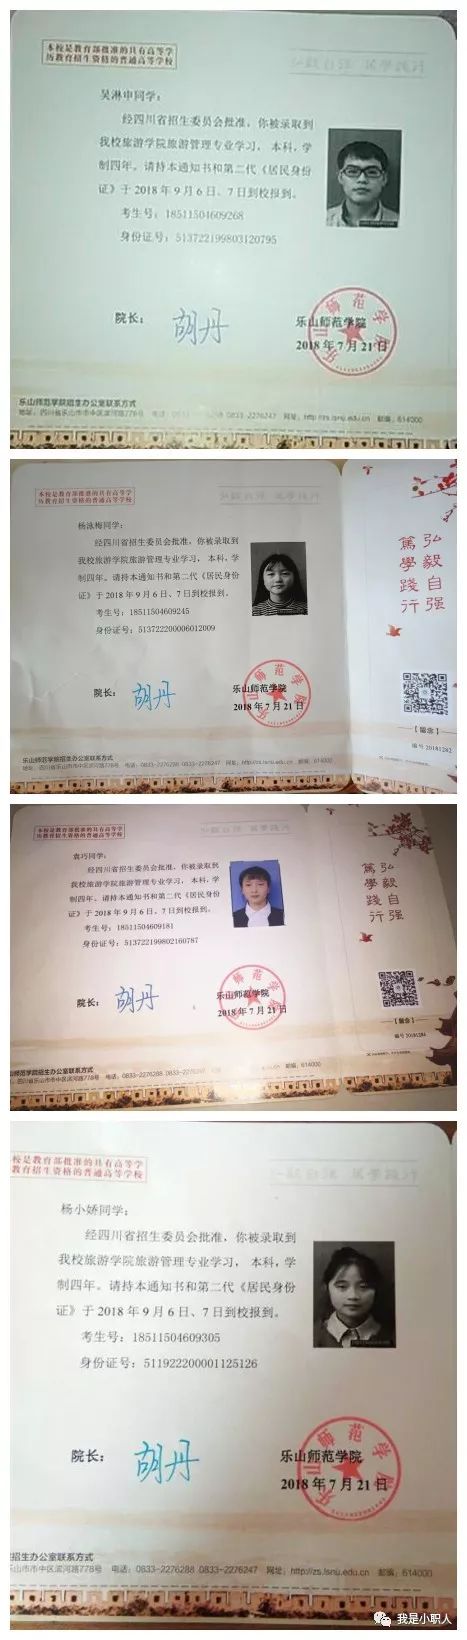 本校是教育部批准的具有高等学
历教育招生资格的普通高等学校
吴淋申同学：
经四川省招生委员会批准，你被录取到
我校旅游学院旅游管理专业学习， 本科，学
制四年。请持本通知书和第二代《居民身份
证》于 2018 年 9 月 6 日、7 日到校报到。
考生号：18511504609268
身份证号：513722199803120795
院长： 胡丹
乐山师范学院
2018 年 7 月 21 日
乐山师范学院招生办公室联系方式
地址：四川省乐山市市中区滨河路778号 电话：0833 0833-2276247 网址：http://zs.lsnu.edu.cn 邮编：614000
本校是教育部批准的具有高等学
历教育招生资格的普通高等学校
杨泳梅同学：
经四川省招生委员会批准，你被录取到
我校旅游学院旅游管理专业学习， 本科，学
制四年。请持本通知书和第二代《居民身份
证》于 2018 年 9 月 6 日、7 日到校报到。
考生号：18511504609245
身份证号：513722200006012009
院长： 胡丹
乐山师范学院
2018 年 7 月 21 日
弘毅自强
篤學踐行
【留念】
编号 20181282
乐山师范学院招生办公室联系方式
地址：四川省乐山市市中区滨河路778号 电话：0833-2276288 0833-2276247 网址：http://zs.lsnu.edu.cn 邮编：614000
本校是教育部批准的具有高等学
历教育招生资格的普通高等学校
袁巧同学：
经四川省招生委员会批准，你被录取到
我校旅游学院旅游管理专业学习， 本科，学
制四年。请持本通知书和第二代《居民身份
证》于 2018 年 9 月 6 日、7 日到校报到。
考生号：18511504609181
身份证号：513722199802160787
院长： 胡丹
乐山师范学院
2018 年 7 月 21 日
弘毅自强
篤學踐行
【留念】
编号 20181284
山师范学院招生办公室联系方式
四川省乐山市市中区滨河路778号 电话：0833-2276288 0833-2276247 网址：http://zs.lsnu.edu.cn 邮编：614000
校是教育部批准的具有高等学
教育招生资格的普通高等学校
杨小娇同学：
经四川省招生委员会批准，你被录取到
我校旅游学院旅游管理专业学习， 本科，学
制四年。请持本通知书和第二代《居民身份
证》于 2018 年 9 月 6 日、7 日到校报到。
考生号：18511504609305
身份证号：511922200001125126
院长： 胡丹
乐山师范学院
2018 年 7 月 21 日
招生办公室联系方式
乐山市市中区滨河路778号 电话：0833-2276288 0833-2276247 网址：http://zs.lsnu.edu.cn 邮编：614000
我是小职人